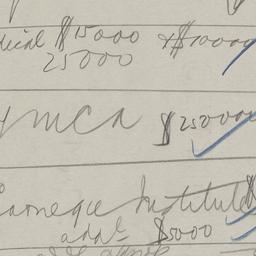 dical $15000 + $10000
25000
YMCA $250000
Carnegie Institute $
addl $5000